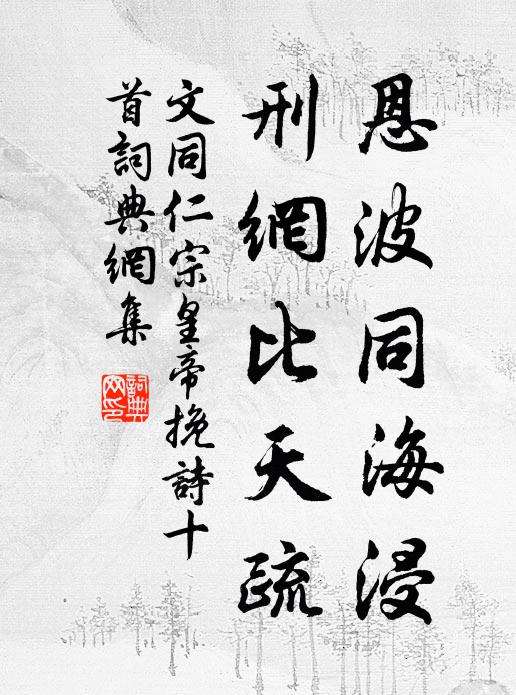 恩波同海浸
刑網比天疏
文同仁宗皇帝挽詩十
首詞典網集
詞典
网印